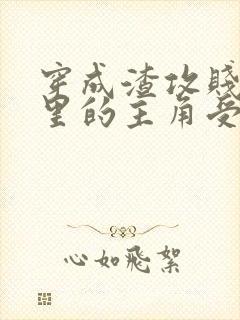 穿成渣攻賤
里的主角受
心如飛絮